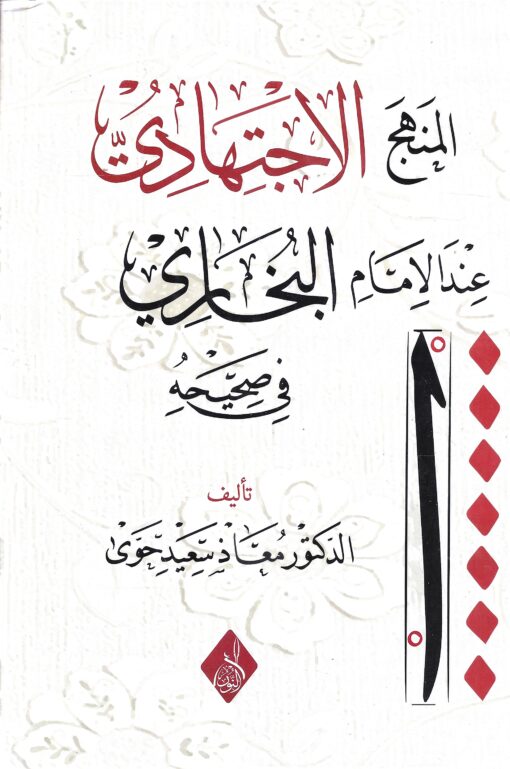 المَنهَجَ الاِجْتِهَادِيُّ
عِنْدَ الإِمَامِ البُخَارِي
فِي صَحِيْحِهِ
تأليف
الدكتور مُعَاذ سَعِيْد حَوَّى